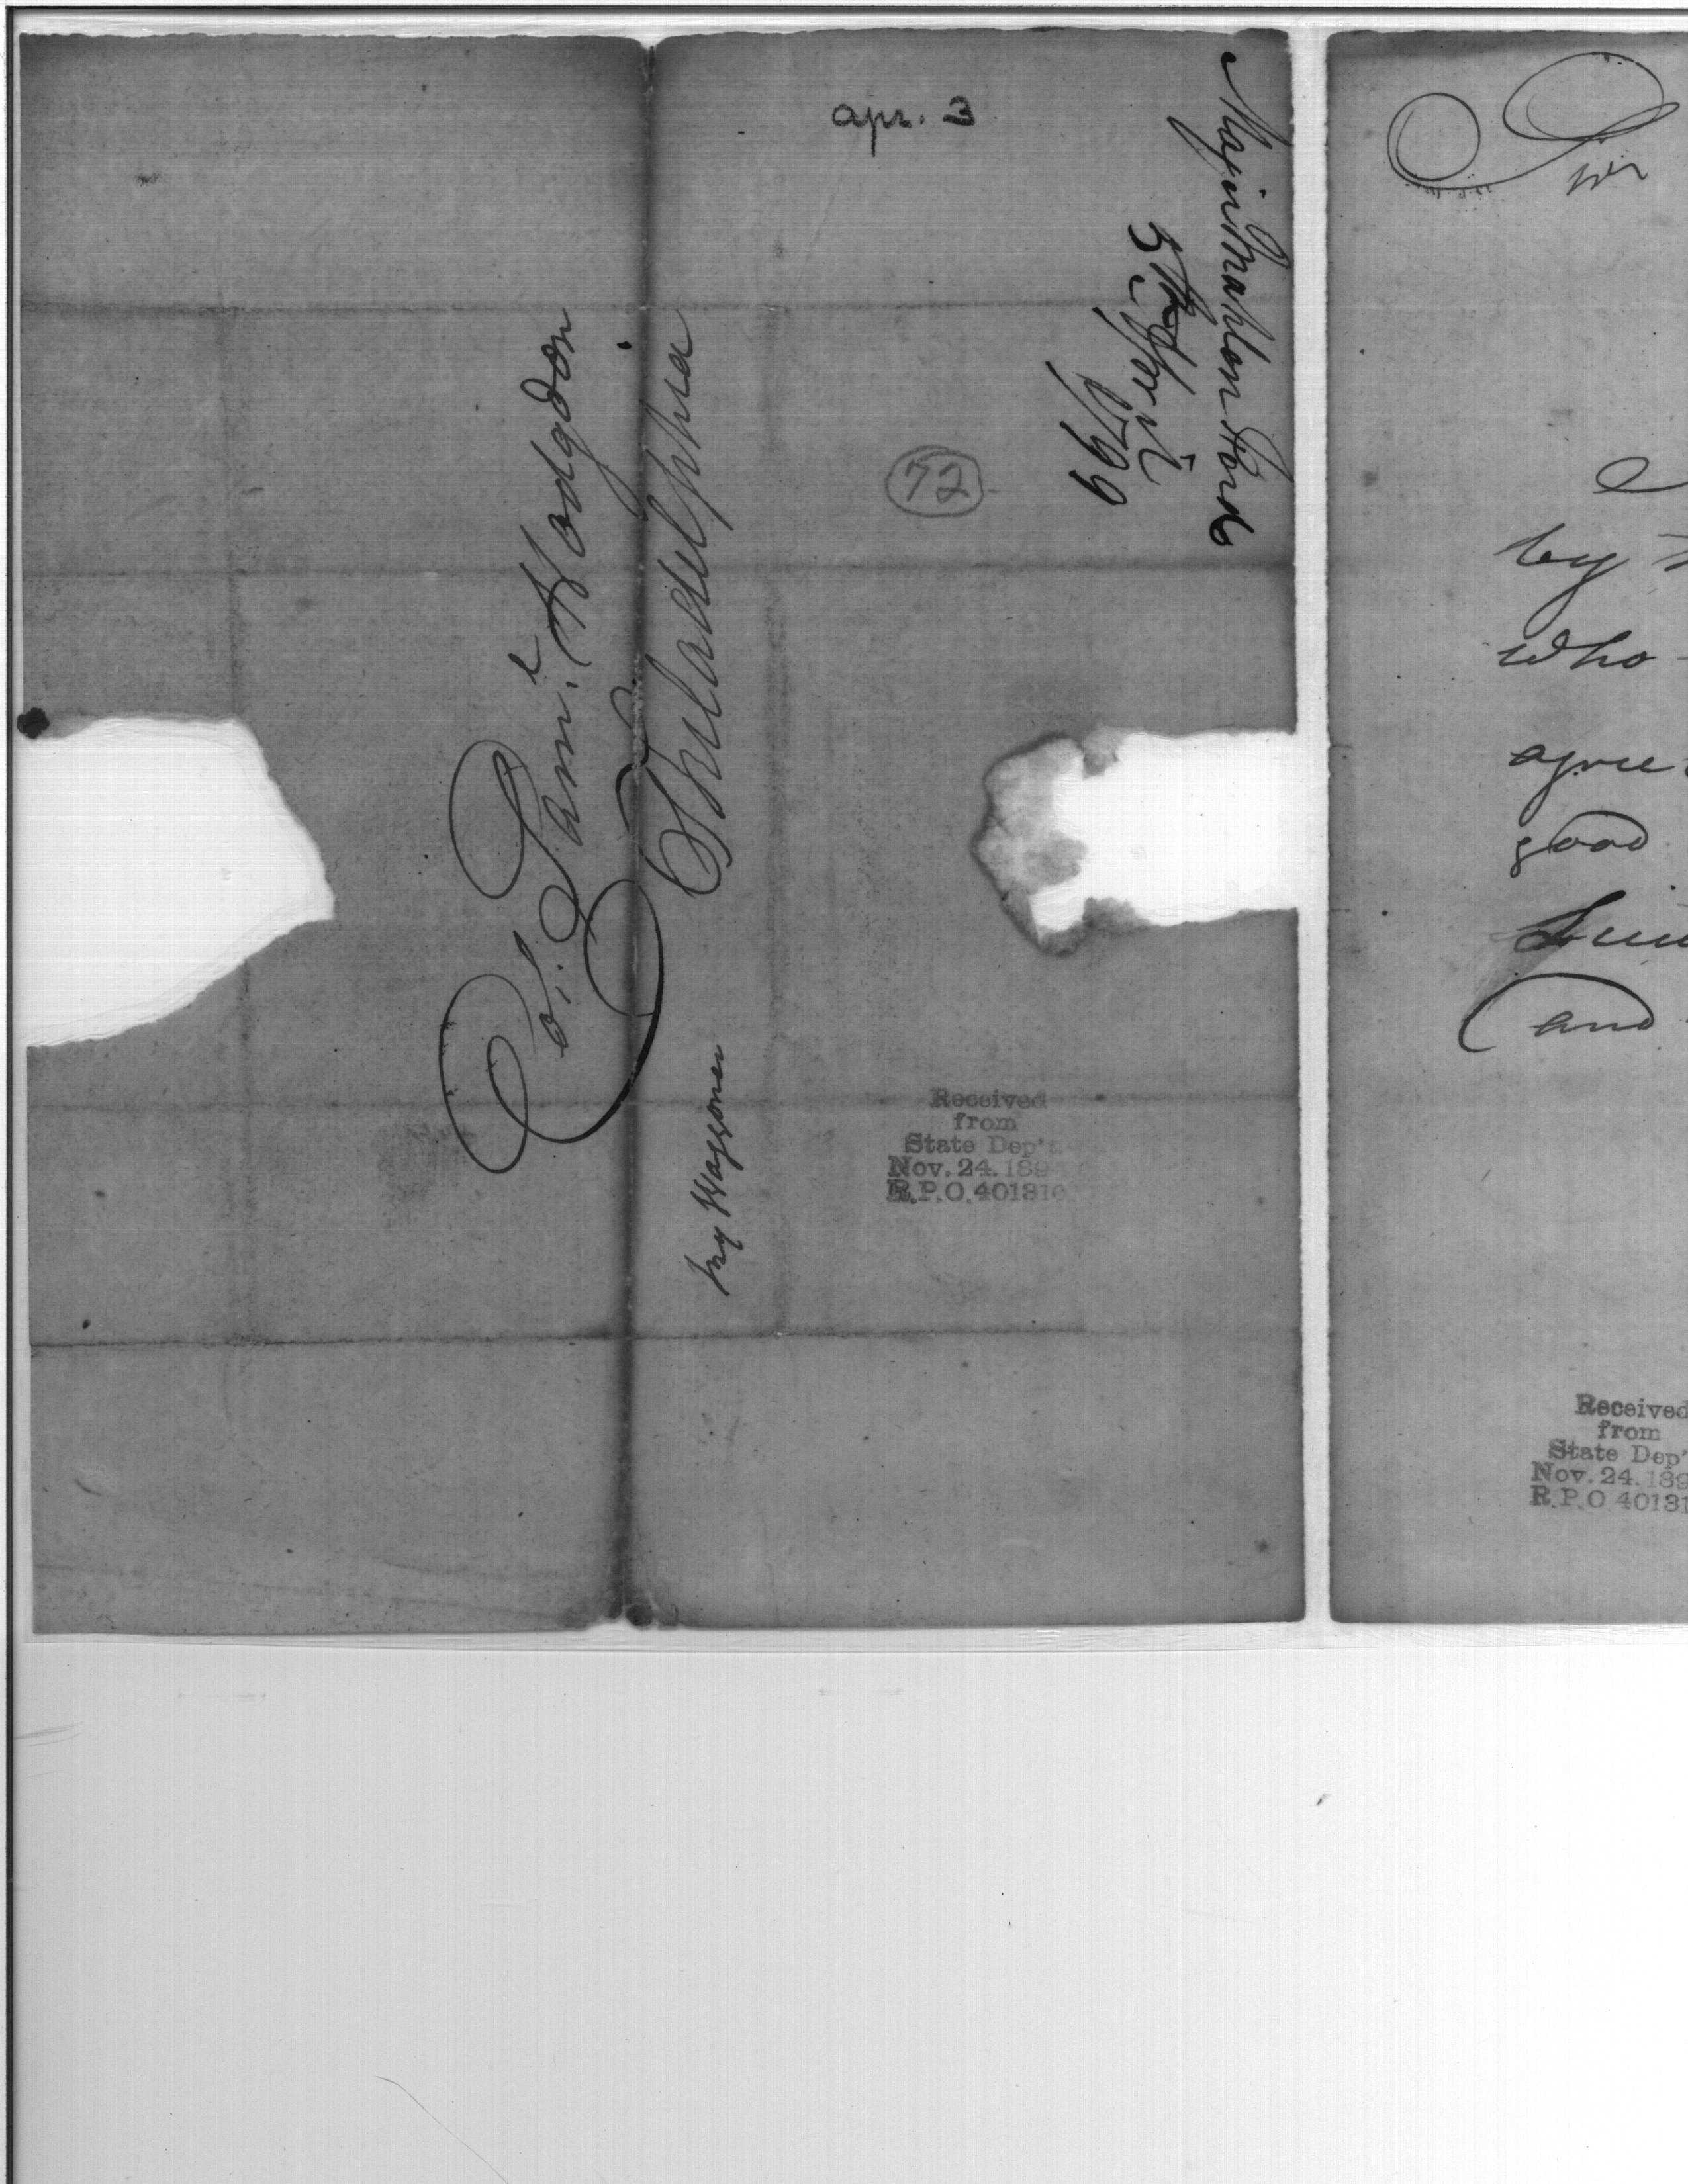 apr. 3
Major Mahlon Ford
5th April
1799
72
Col. Saml. Hodgdon
Philadelphia
Mr Waggoner
Received
from
State Dep't
Nov. 24. 189
R.P.O. 401310
Sir
I
by
who
agree
good
and
Received
from
State Dep'
Nov. 24. 189
R.P.O. 40131